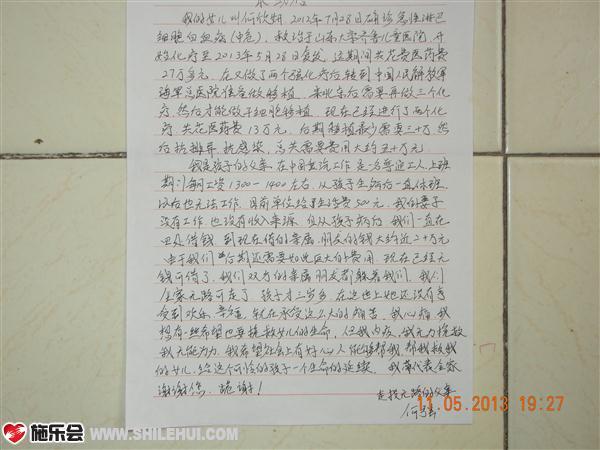 求助信
我的女儿叫何欣期 2012年7月28日确诊急性淋巴
细胞白血病(中危), 救治于山东大学齐鲁儿童医院 开
始化疗至2013年5月28日复发 这期间共花费医药费
27万多元, 在又做了两个强化疗后转到中国人民解放军
海军总医院准备做移植, 来北京后需要再做三个化
疗 然后才能做干细胞移植, 现在已经进行了两个化
疗 共花医药费13万元, 后期移植最少需要三十万 然
后抗排异, 抗感染, 总共需要费用大约五十万元
我是孩子的父亲 在中国重汽工作 是一名普通工人 上班
期间工资1300-1400左右, 从孩子生病后一直休班
以后也无法工作, 目前单位给生活费500元, 我的妻子
没有工作 也没有收入来源, 自从孩子病后 我们一直在
四处借钱 到现在借的亲属, 朋友的钱大约近二十万元
由于我们后期还需要如此巨大的费用 现在已经无
钱可借了, 我们双方的亲属 朋友都躲着我们, 我们
全家无路可走了 孩子才三岁多 在这世上她还没有享
受到欢乐、幸福, 就在承受这么大的痛苦, 我心痛, 我
想有一丝希望也要挽救女儿的生命, 但我内疚, 我无力挽救
我无能为力, 我希望社会上有好心人能够帮我, 帮我救我
的女儿, 给这个可怜的孩子一个生命的延续, 我代表全家
谢谢您, 跪谢!
走投无路的父亲
何
11.05.2013 19:27
施乐会
WWW.SHILEHUI.COM